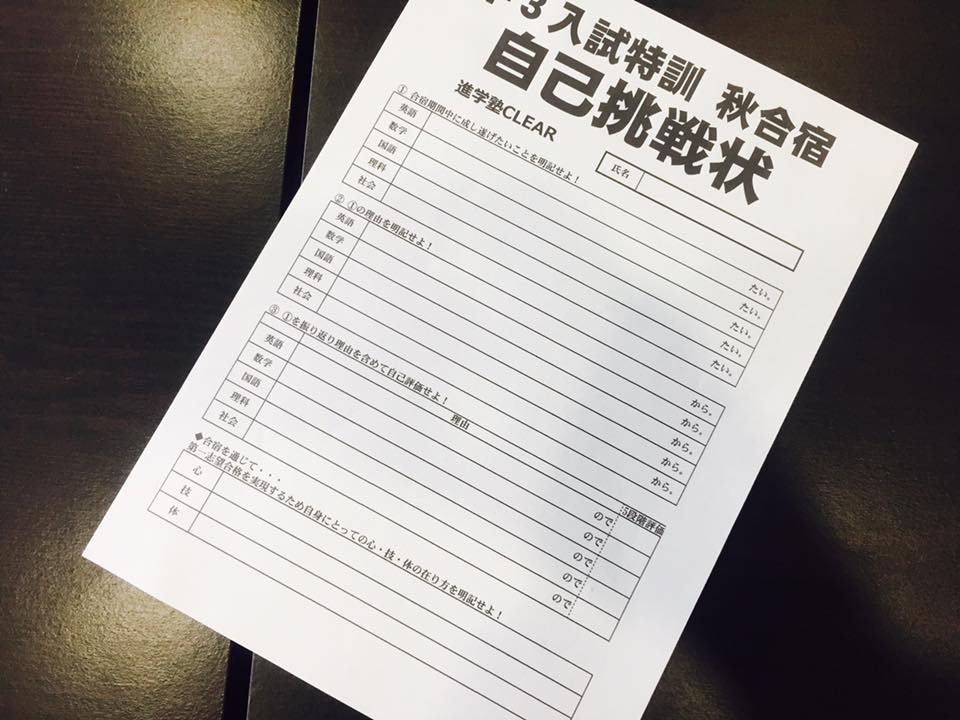 3 入試特訓 秋合宿
自己挑戦状
進学塾CLEAR
氏名
① 合宿期間中に成し遂げたいことを明記せよ！
英語 たい。
数学 たい。
国語 たい。
理科 たい。
社会 たい。
② ①の理由を明記せよ！
英語 から。
数学 から。
国語 から。
理科 から。
社会 から。
③ ①を振り返り理由を含めて自己評価せよ！
理由 5段階評価
英語 ので
数学 ので
国語 ので
理科 ので
社会 ので
◆合宿を通じて・・・
第一志望合格を実現するため自身にとっての心・技・体の在り方を明記せよ！
心
技
体